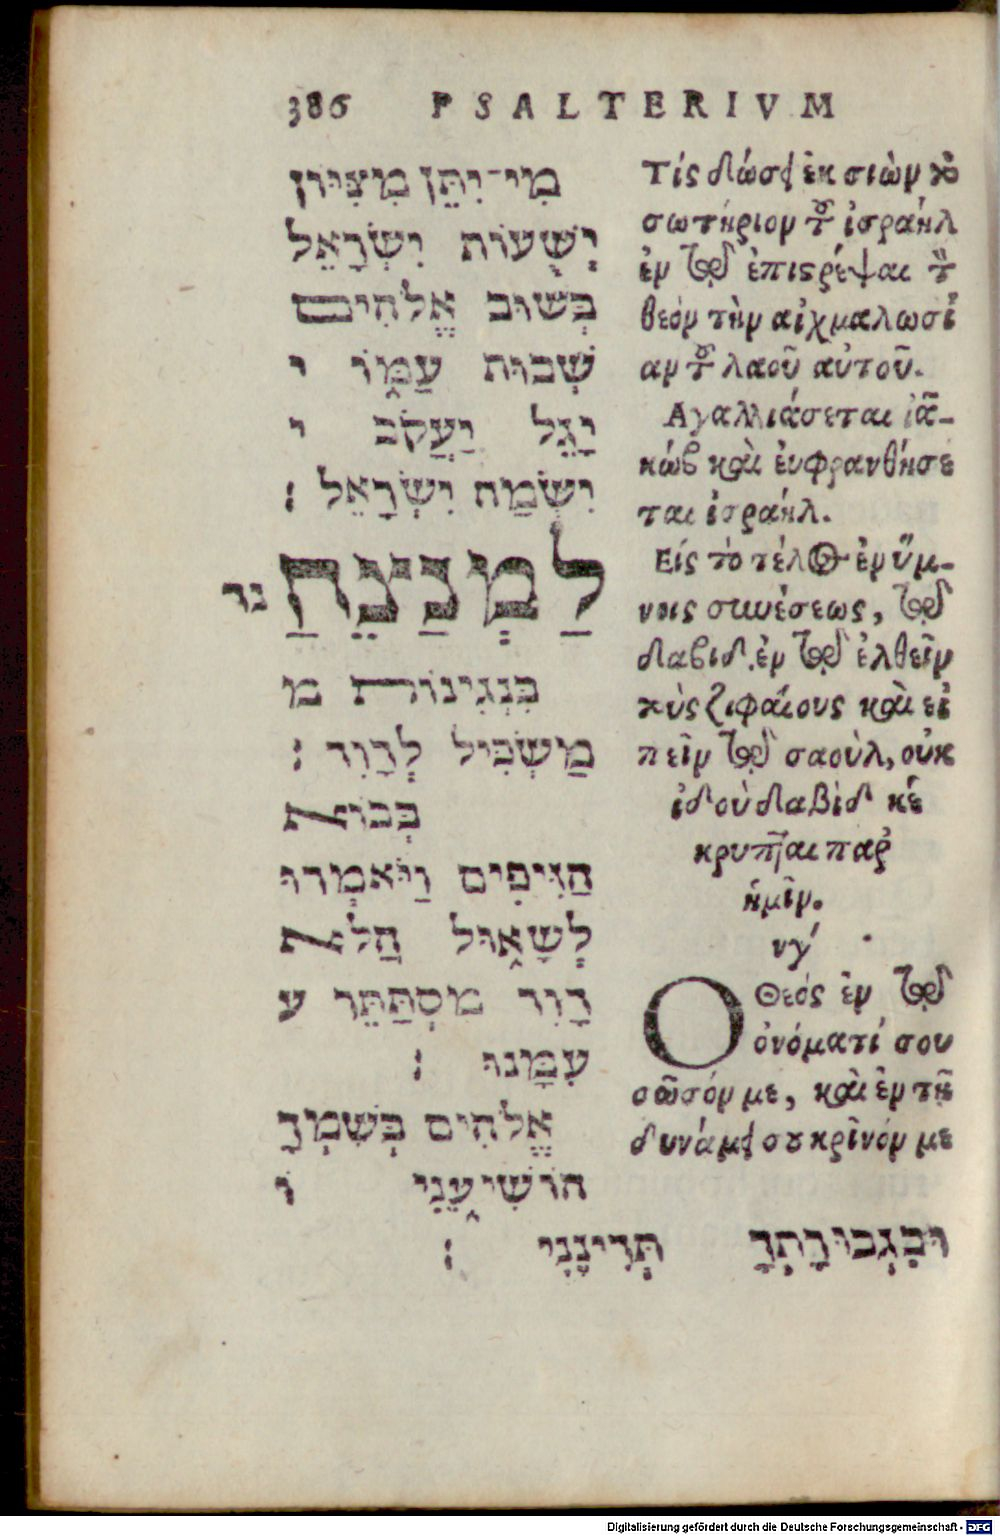 386 PSALTERIVM
מִי־יִתֵּן מִצִּיּוֹן
יְשֻׁעוֹת יִשְׂרָאֵל
בְּשׁוּב אֱלֹהִים
שְׁבוּת עַמּוֹ י
יָגֵל יַעֲקֹב י
יִשְׂמַח יִשְׂרָאֵל :
לַמְנַצֵּחַ נד
בִּנְגִינוֹת מ
מַשְׂכִּיל לְדָוִד :
בְּבוֹא
הַזִּיפִים וַיֹּאמְרוּ
לְשָׁאוּל הֲלֹא
דָוִד מִסְתַּתֵּר ע
עִמָּנוּ :
אֱלֹהִים בְּשִׁמְךָ
הוֹשִׁיעֵנִי ו
וּבִגְבוּרָתְךָ תְּדִינֵנִי :
Τίς δώσει ἐκ σιὼν τὸ
σωτήριον τοῦ ἰσραήλ
ἐν τῷ ἐπιστρέψαι τὸν
θεόν τὴν αἰχμαλωσί
αν τοῦ λαοῦ αὐτοῦ.
Αγαλλιάσεται ἰα-
κώβ καὶ ἐυφρανθήσε
ται ἰσραήλ.
Εἰς τὸ τέλος ἐν ὕμ-
νοις συνέσεως, τῷ
δαβιδ. ἐν τῷ ἐλθεῖν
τοὺς ζιφαίους καὶ εἰ
πεῖν τῷ σαοὺλ, οὐκ
ἰδοὺ δαβὶδ κέ
κρυπται παρ
ἡμῖν.
νγ'
Ο Θεός ἐν τῷ
ὀνόματί σου
σῶσόν με, καὶ ἐν τῇ
δυνάμει σου κρῖνόν με
Digitalisierung gefördert durch die Deutsche Forschungsgemeinschaft - DFG